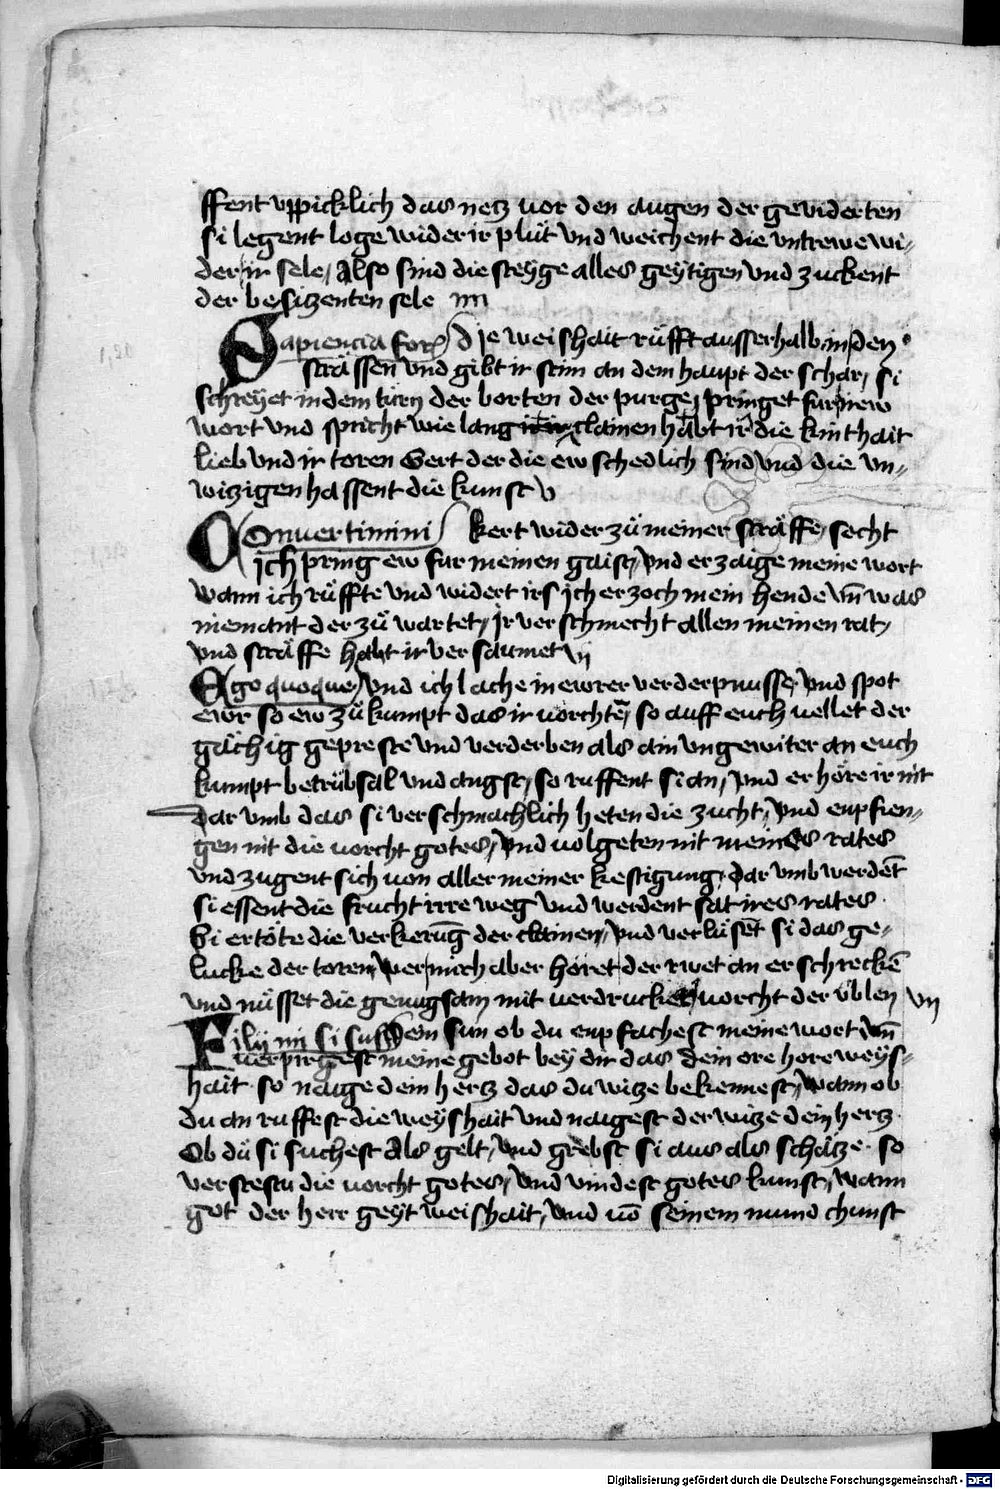 ffent vppicklich das netz vor den augen der geviderten
si legent loge wider ir plüt vnd weichent die vntrewe wi-
der ir sele / Also sind die steyge alles geytigen vnd zuckent
der besitzenten sele iiii
Sapiencia for(is) die weishait rüfft ausserhalb in den
strässen vnd gibt ir stim an dem haupt der schar / si
schreyet in dem türn der borten der purge / pringet fur new
wort vnd spricht wie lang clainen habt ir die kinthait
lieb vnd ir toren gert der die ew schedlich sind vnd die vn-
witzigen hassent die kunst v
Conuertimini kert wider zü meiner sträffe / secht
ich pring ew fur meinen gaist / vnd erzaige meine wort
wann ich rüffte vnd widert irs ich erzoch mein hende vn̄ was
niemant der zü wartet / ir verschmecht allen meinen rat /
vnd sträffe habt ir versaumet vi
Ego quoque / vnd ich lache in ewrer verderpnusse / vnd spot
ewr so ew zü kumpt das ir vorchtē / so auff euch vellet der
gächig gepreste vnd verderben als ain vngewiter an euch
kumpt betrübsal vnd angst / so ruffent si an / vnd erhöre ir nit
dar vmb das si verschmachlich heten die zucht / vnd enpfien-
gen nit die vorcht gotes / vnd volgeten nit meines rates
vnd zugent sich von aller meiner kestigung / dar vmb werdēt
si essent die frucht irre weg vnd werdent sat ires rates
Si ertöte die verkerūg der clainen / vnd verlüsēt si das ge-
lucke der toren / wer mich aber höret der rwet an erschreckē
vnd nüsset die genugsam mit verdruckter vorcht der üblen vii
Filij mi si susc Dein sun ob du enpfachest meine wort vn̄
verpirgest meine gebot bey dir das dein ore hore weys-
hait so naige dein hertz das du witze bekennest / wann ob
du an ruffest die weyshait vnd naigest der witze dein hertz
Ob dü si suchest als gelt / vnd grebst si aus als schätze so
verstestu die vorcht gotes / vnd vindest gotes kunst / wann
got der herr geyt weishait / vnd vō seinem mund chunst
Digitalisierung gefördert durch die Deutsche Forschungsgemeinschaft - DFG